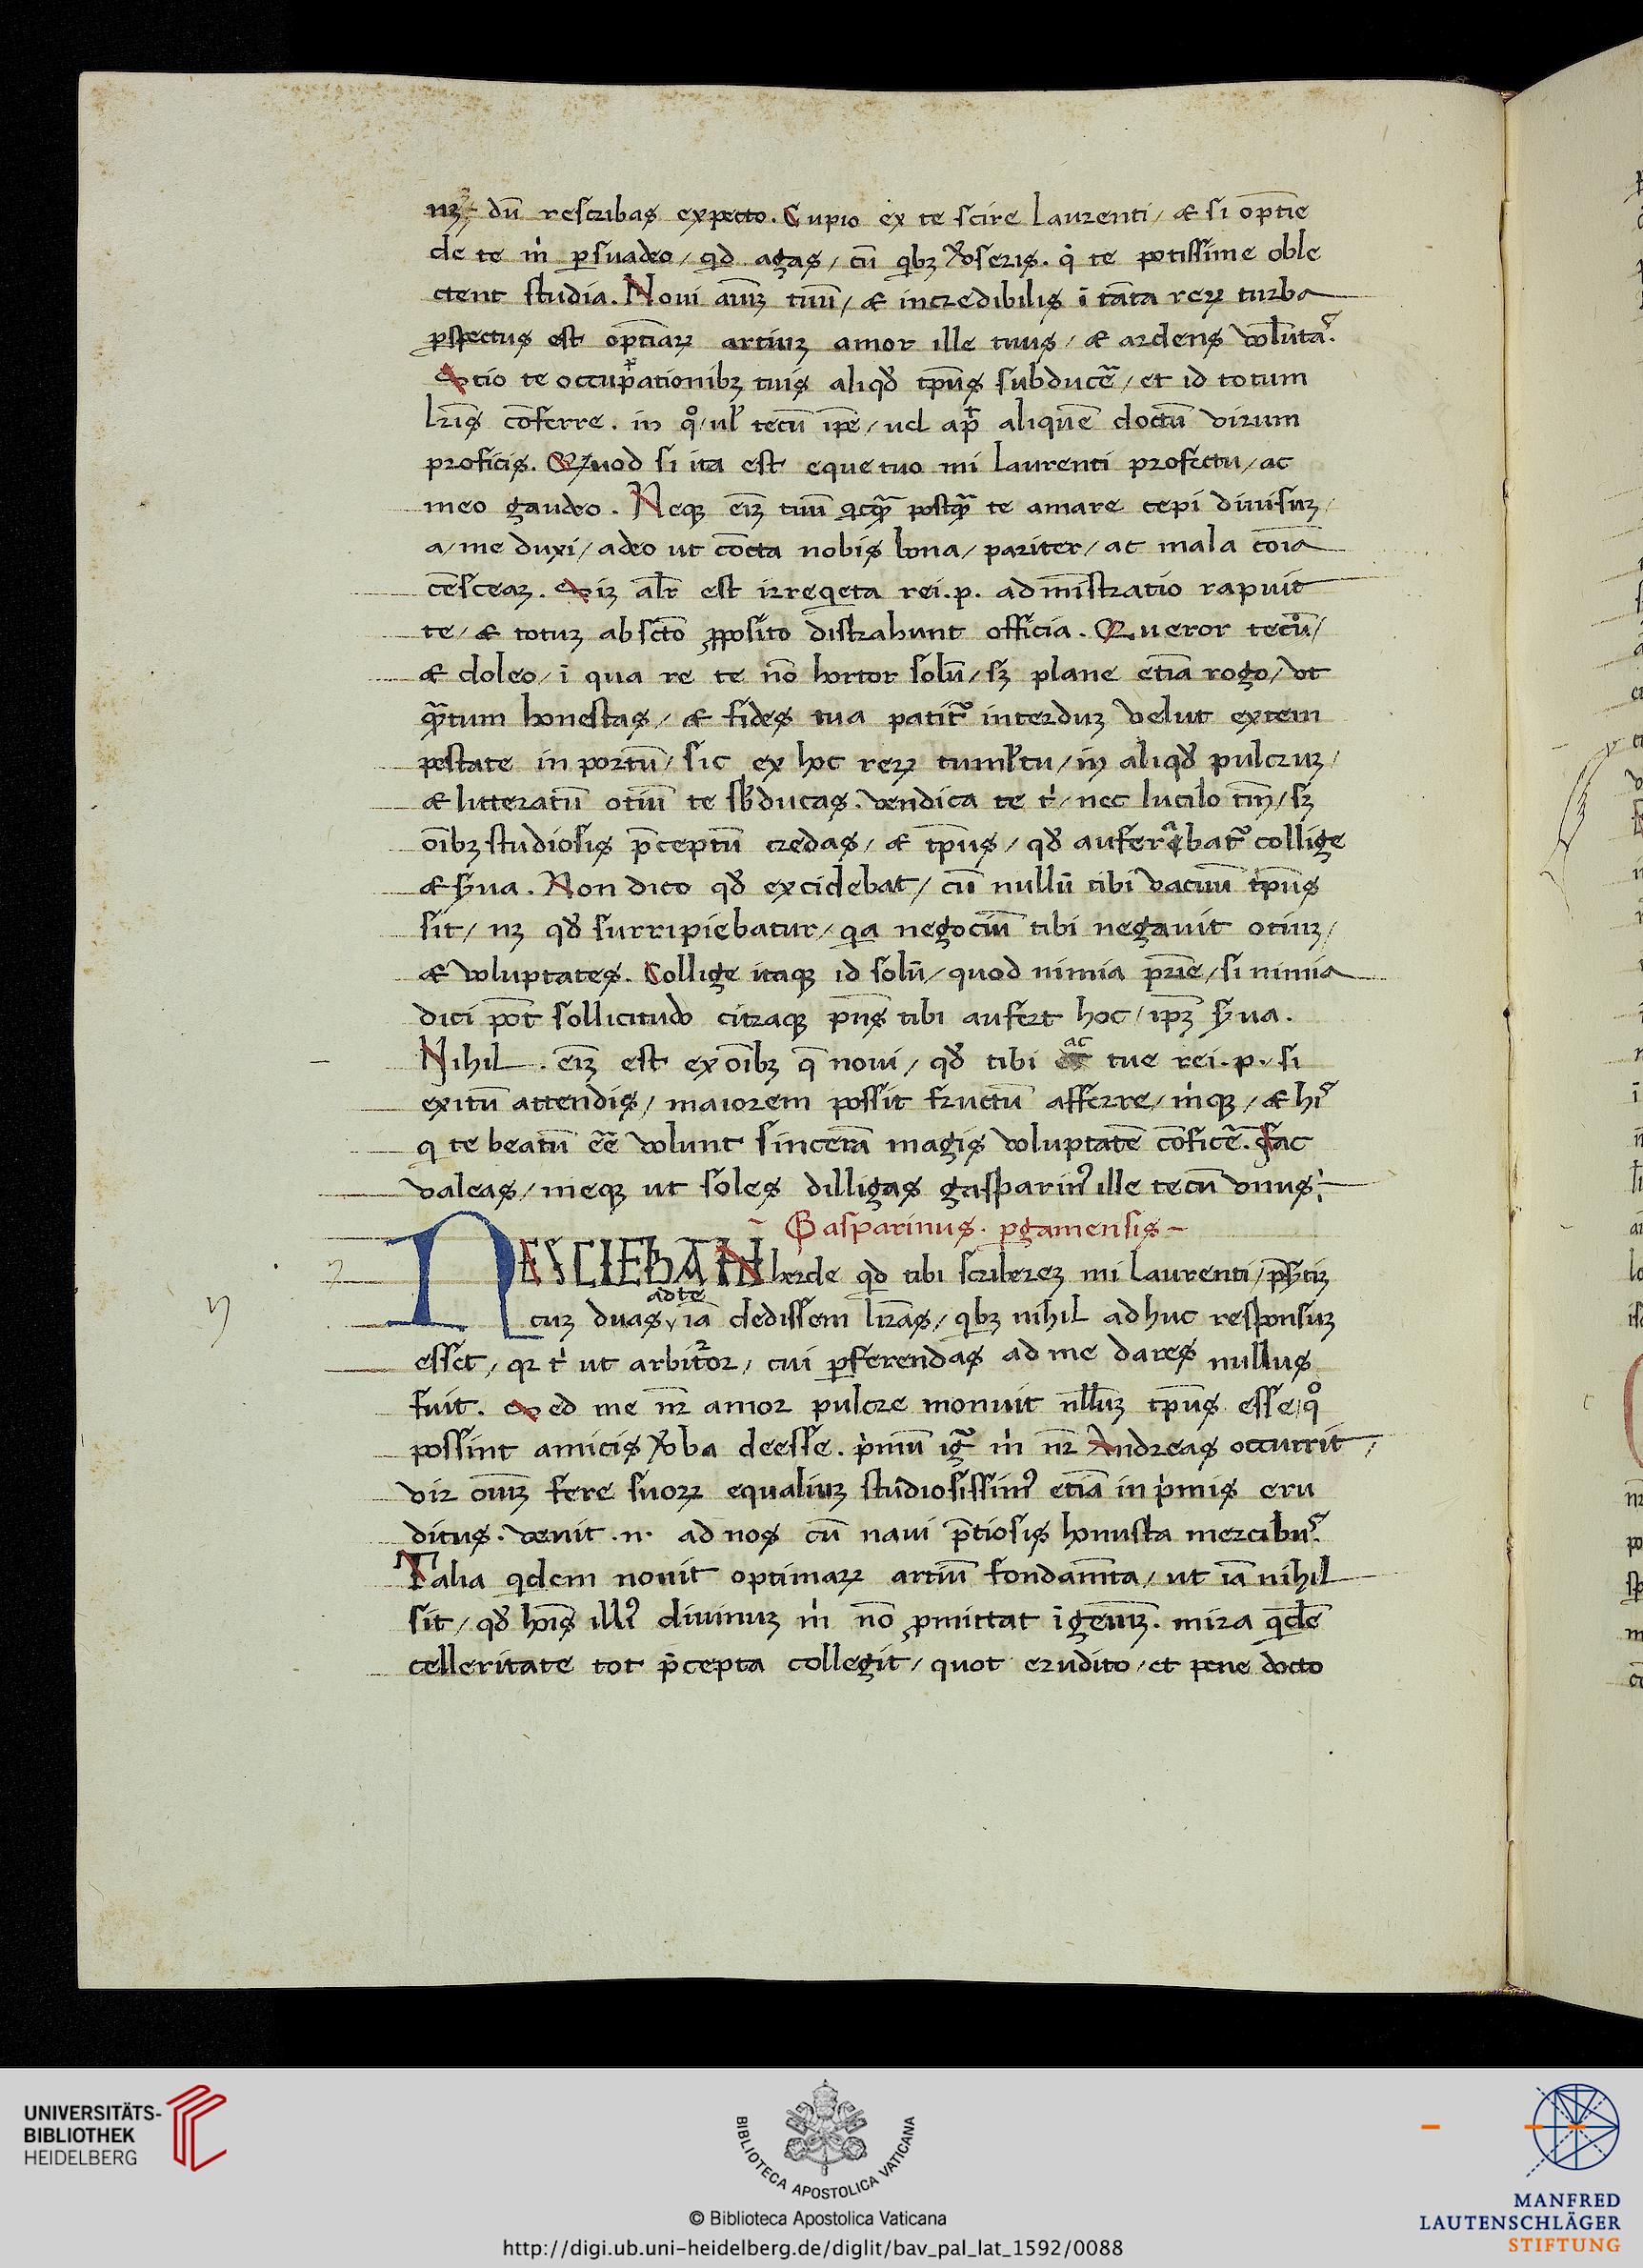 nꝫ dū rescribas expecto. Cupio ex te scire Laurenti / & si optīe
de te m̍ ꝑsuadeo / qd agas / cū qbꝫ ꝟseris. q̍ te potissime oble
ctent studia. Noui aīuꝫ tuū / & incredibilis ī tāta reꝝ turba
ꝑspectus est optīaꝝ artiuꝫ amor ille tuus / & ardens voluta᷒.
Scio te occupationibꝫ tuis aliqd̄ tp̄us subducē / et id totum
lr̄is cōferre. in q̊ / ul̍ tecū ip̄e / uel ap̄ aliquē doctū virum
proficis. Quod si ita est eque tuo mi Laurenti profectu / ac
meo gaudeo. Neqꝫ eīꝫ tuū qcqȝ̄ postqȝ̄ te amare cepi diuisuꝫ /
a / me duxi / adeo ut cōcta nobis bona / pariter / ac mala coīa
cēsceaꝫ. Siꝫ alr̄ est irreqeta rei. p. admīstratio rapuit
te / & totuꝫ ab sc̄to ꝓposito distrahunt officia. Queror tecū /
& doleo / ī qua re te nō hortor solū / sꝫ plane etiā rogo / vt
qȝ̄tum honestas / & fides tua patit᷑ interduꝫ velut extem
pestate in portū / sic ex hoc reꝝ tumultu / in aliqd̄ pulcruꝫ /
& litteratū otiū te sb̍ducas. vendica te t̍ / nec lucilo tm̄ / sꝫ
oībꝫ studiosis p̄ceptū credas / & tp̄us / qd̄ auferebat᷑ collige
& ẜua. Non dico qd̄ excidebat / cū nullū tibi vacuū tp̄us
sit / nꝫ qd̄ surripiebatur / qa negociū tibi negauit otiuꝫ /
& voluptates. Collige itaqꝫ id solū / quod nimia pr̄ie / si nimia
dici pōt sollicitudo citraqꝫ pn̄s tibi aufert hoc / ip̄ꝫ ẜua.
Nihil. eīꝫ est ex oībꝫ q̄ noui / qd̄ tibi ac tue rei. p. si
exitū attendis / maiorem possit fructū afferre / m̍qꝫ / & hi᷒
q te beatū eē volunt sincerā magis voluptatē cōficē. Fac
valeas / meqꝫ ut soles dilligas gasparin᷒ ille tecū vnus.
Gasparinus. pgamensis
NESCIEBAN hercle qd tibi scribereꝫ mi Laurenti / p̄ẜtiꝫ
cuꝫ duas ad te iā dedissem lr̄as / qbꝫ nihil adhuc responsuꝫ
esset / qꝛ t̍ ut arbitror / cui ꝑferendas ad me dares nullus
fuit. Sed me nr̄ amor pulcre monuit nll̄uꝫ tp̄us esse / q̊
possint amicis ꝟba deesse. p̍mū ig᷑ m̍ nr̄ Andreas occurrit /
vir oīuꝫ fere suoꝝ equaliuꝫ studiosissim᷒ etiā in p̍mis eru
ditus. venit. n. ad nos cū naui p̄tiosis honusta mercibu᷒.
Talia qdem nouit optimaꝝ artiū fondamīta / ut iā nihil
sit / qd̄ hoīs illi᷒ diuinuꝫ m̍ nō ꝓmittat īgeniuꝫ. mira qdē
celleritate tot p̄cepta collegit / quot erudito / et pene docto
UNIVERSITÄTS-
BIBLIOTHEK
HEIDELBERG
BIBLIOTECA APOSTOLICA VATICANA
© Biblioteca Apostolica Vaticana
http://digi.ub.uni-heidelberg.de/diglit/bav_pal_lat_1592/0088
MANFRED
LAUTENSCHLÄGER
STIFTUNG